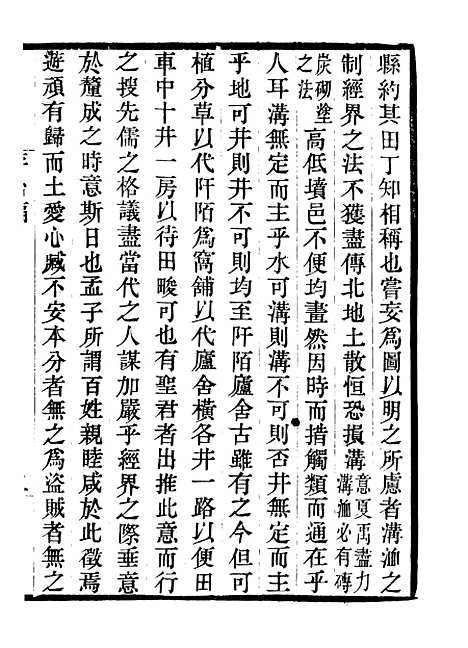 縣約其田丁知相稱也嘗妄爲圖以明之所慮者溝洫之
制經界之法不獲盡傳北地土散恒恐損溝意夏禹盡力溝洫必有磚
炭砌塗之法高低墳邑不便均畫然因時而措觸類而通在乎
人耳溝無定而主乎水可溝則溝不可則否井無定而主
乎地可井則井不可則均至阡陌廬舍古雖有之今但可
植分草以代阡陌爲窩鋪以代廬舍橫各井一路以便田
車中十井一房以待田畯可也有聖君者出推此意而行
之搜先儒之格議盡當代之人謀加嚴乎經界之際垂意
於釐成之時意斯日也孟子所謂百姓親睦咸於此徵焉
遊頑有歸而土愛心臧不安本分者無之爲盜賊者無之